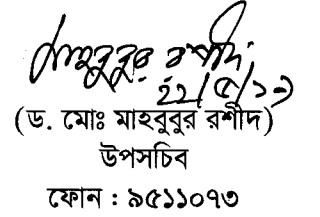 মাহবুবুর রশীদ
২২/৫/১৩
(ড. মোঃ মাহবুবুর রশীদ)
উপসচিব
ফোন : ৯৫১১০৭৩